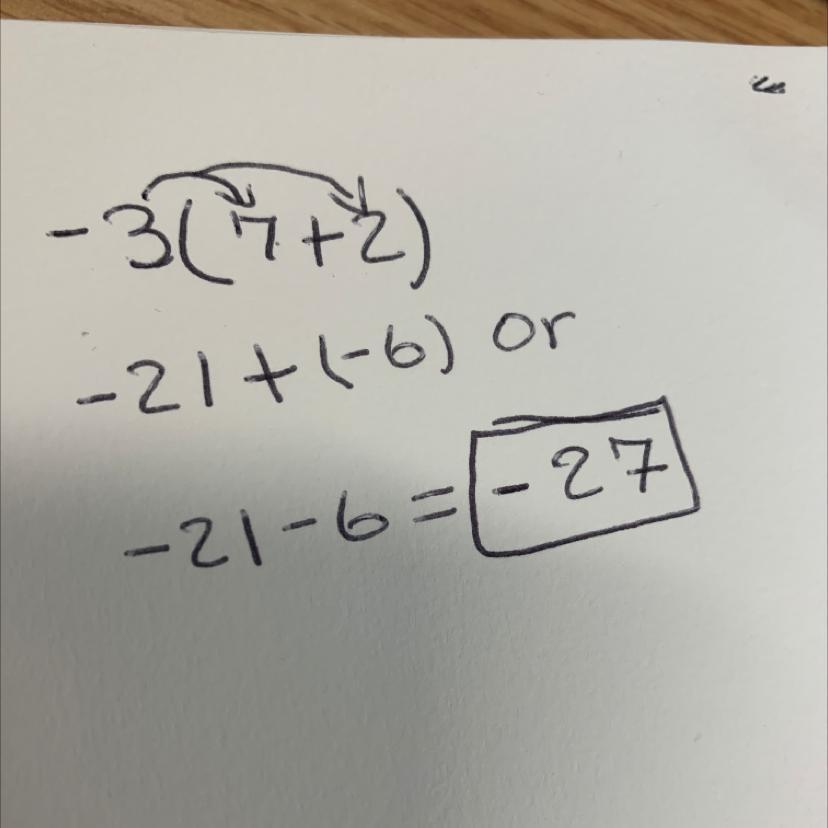 -3(7+2)
-21+(-6) or
-21-6=-27